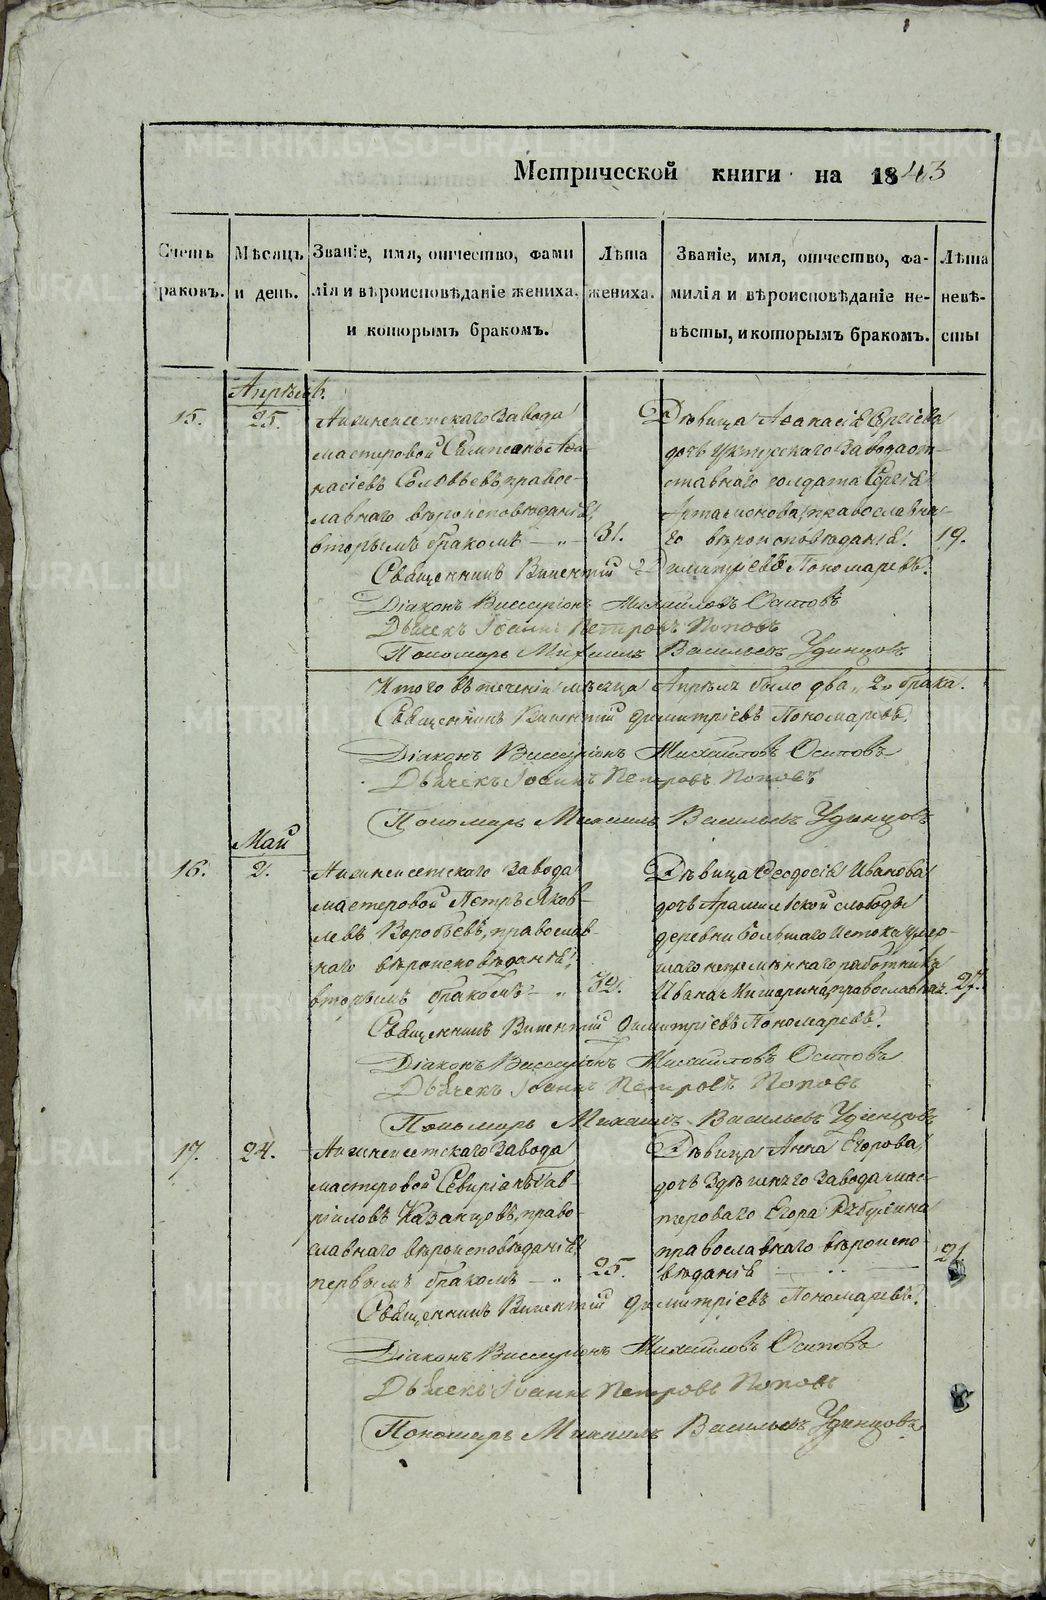 Метрической книги на 1843
Счетъ браковъ.
Мѣсяцъ и день.
Званіе, имя, отчество, фами
лія и вѣроисповѣданіе жениха,
и которымъ бракомъ.
Лѣта
жениха.
Званіе, имя, отчество, фа-
милія и вѣроисповѣданіе не-
вѣсты, и которымъ бракомъ.
Лѣта
невѣ-
сты
Апрѣль.
15.
25.
Нижнеисетскаго Завода
мастеровой Сампсонъ Аѳа
насіевъ Соловьевъ правос-
лавнаго вѣроисповѣданія,
вторымъ бракомъ — „ —
31.
Дѣвица Аѳанасія Сергіева
дочь Уктусскаго Завода от-
ставнаго солдата Сергія
православна-
го вѣроисповѣданія.
19.
Священникъ Викентій Димитріевъ Пономаревъ.
Діаконъ Виссаріонъ Михайловъ Осиповъ
Дьячекъ Іоаннъ Петровъ Поповъ
Пономарь Михаилъ Васильевъ Удинцовъ
Итого въ теченіи мѣсяца Апрѣля было два „2„ брака.
Священникъ Викентій Димитріевъ Пономаревъ.
Діаконъ Виссаріонъ Михайловъ Осиповъ
Дьячекъ Іоаннъ Петровъ Поповъ
Пономарь Михаилъ Васильевъ Удинцовъ
Май
16.
2.
Нижнеисетскаго Завода
мастеровой Петръ Яков-
левъ Воробьевъ, православ
наго вѣроисповѣданія,
вторымъ бракомъ — „
32.
Дѣвица Ѳеодосія Иванова
дочь Арамильской слободы
деревни Большаго Истока умер-
шаго непремѣннаго работника
Ивана православнаг.
27.
Священникъ Викентій Димитріевъ Пономаревъ.
Діаконъ Виссаріонъ Михайловъ Осиповъ
Дьячекъ Іоаннъ Петровъ Поповъ
Пономарь Михаилъ Васильевъ Удинцовъ
17.
24.
Нижнеисетскаго Завода
мастеровой Севиріанъ Гав-
риловъ Казанцовъ, право-
славнаго вѣроисповѣданія
первымъ бракомъ — „
25.
Дѣвица Анна Егорова
дочь Здѣшняго Завода мас-
тероваго Егора
православнаго вѣроиспо-
вѣданія
21.
Священникъ Викентій Димитріевъ Пономаревъ.
Діаконъ Виссаріонъ Михайловъ Осиповъ
Дьячекъ Іоаннъ Петровъ Поповъ
Пономарь Михаилъ Васильевъ Удинцовъ
METRIKI.GASO-URAL.RU